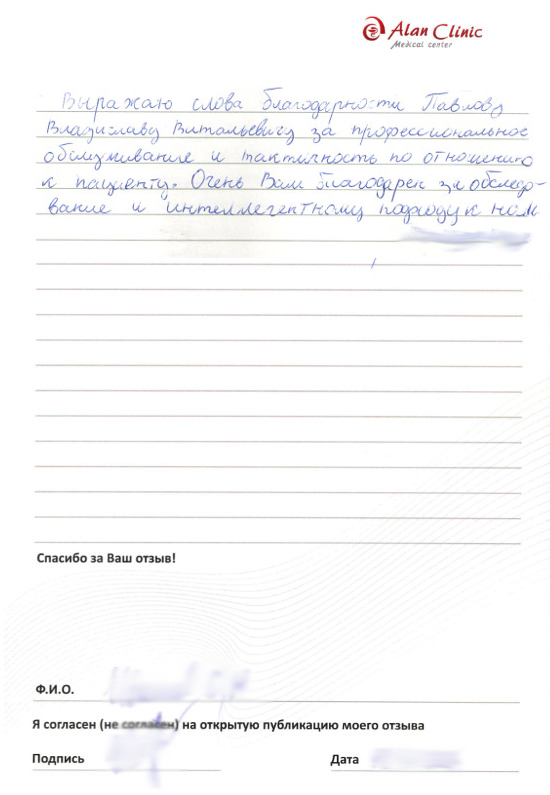 Alan Clinic
Medical center
Выражаю слова благодарности Павлову
Владиславу Витальевичу за профессиональное
обслуживание и тактичность по отношению
к пациенту. Очень Вам благодарен за обследо-
вание и интеллегентному подходу к нам
Спасибо за Ваш отзыв!
Ф.И.О.
Я согласен (не согласен) на открытую публикацию моего отзыва
Подпись
Дата